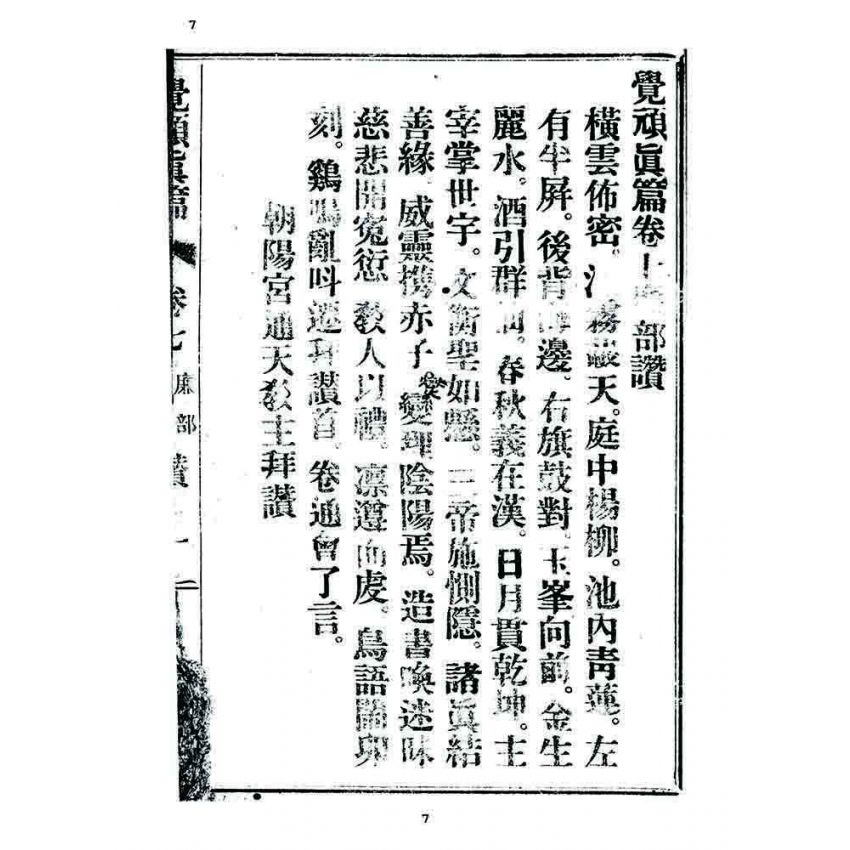 7
覺頑眞篇卷七 部讚
橫雲佈密。 霧蔽天。庭中楊柳。池內靑蓮。左
有半屛。後背 邊。右旗鼓對。玉峯向前。金生
麗水。酒引群仙。春秋義在漢。日月貫乾坤。主
宰掌世宇。文衡聖如懸。三帝施惻隱。諸眞結
善緣。威靈携赤子。燮理陰陽焉。造書喚迷昧
慈悲開寃愆。敎人以禮。凛遵而虔。鳥語 卯
刻。鷄鳴亂 拜讚首。卷通會了言。
朝陽宮通天敎主拜讚
覺頑眞篇 卷七 部讚 一
7